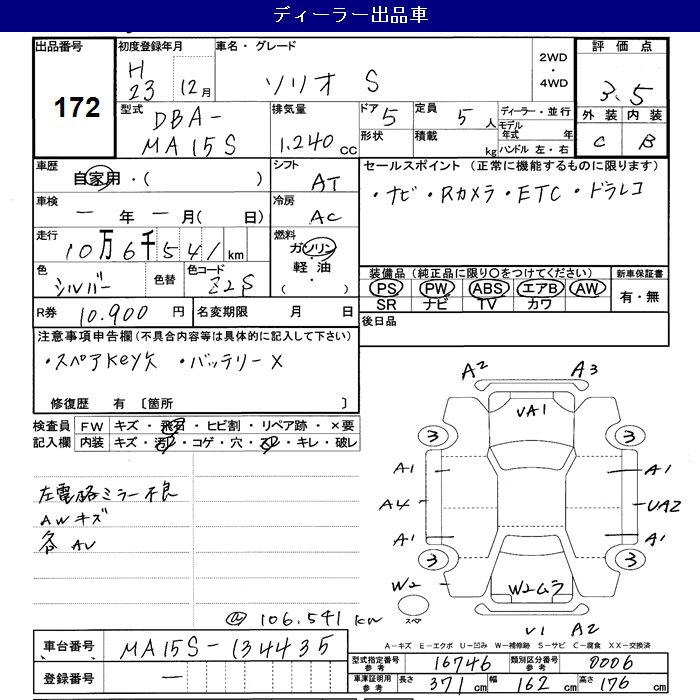 ディーラー出品車
出品番号 初度登録年月 車名・グレード 評価点
172 H 23 12月 ソリオ S 2WD ・ 4WD 3.5
型式 DBA- MA15S 排気量 1.240cc ドア 5 定員 5人 ディーラー・並行 外装 内装
形状 積載 kg モデル年式 年 C B
ハンドル 左・右
車歴 自家用・( ) シフト AT セールスポイント (正常に機能するものに限ります)
・ナビ・Rカメラ・ETC・ドラレコ
車検 ー年ー月( 日) 冷房 AC
走行 10万6千541km 燃料 ガソリン・軽油・( )
色 シルバー 色替 色コード Z2S 装備品 (純正品に限り○をつけてください) 新車保証書
PS PW ABS エアB AW 有・無
SR ナビ TV カワ
R券 10.900円 名変期限 月 日 後日品
注意事項申告欄 (不具合内容等は具体的に記入して下さい)
・スペアKey欠 ・バッテリーX
修復歴 有 〔箇所 〕
検査員 FW キズ・飛石・ヒビ割・リペア跡・×要
記入欄 内装 キズ・汚れ・コゲ・穴・スレ・キレ・破レ
左電格ミラー不良
AWキズ
各AU
106.541km
A2 A3
VA1
3 3
A1 A1
A4 UA2
A1 A1
3 3
W2 W2ムラ
スペア
V1 A2
A-キズ E-エクボ U-凹み W-補修跡 S-サビ C-腐食 XX-交換済
車台番号 MA15S-134435
型式指定番号 参考 16746 類別区分番号 参考 0006
登録番号 ー
車庫証明用 参考 長さ 371cm 幅 162cm 高さ 176cm